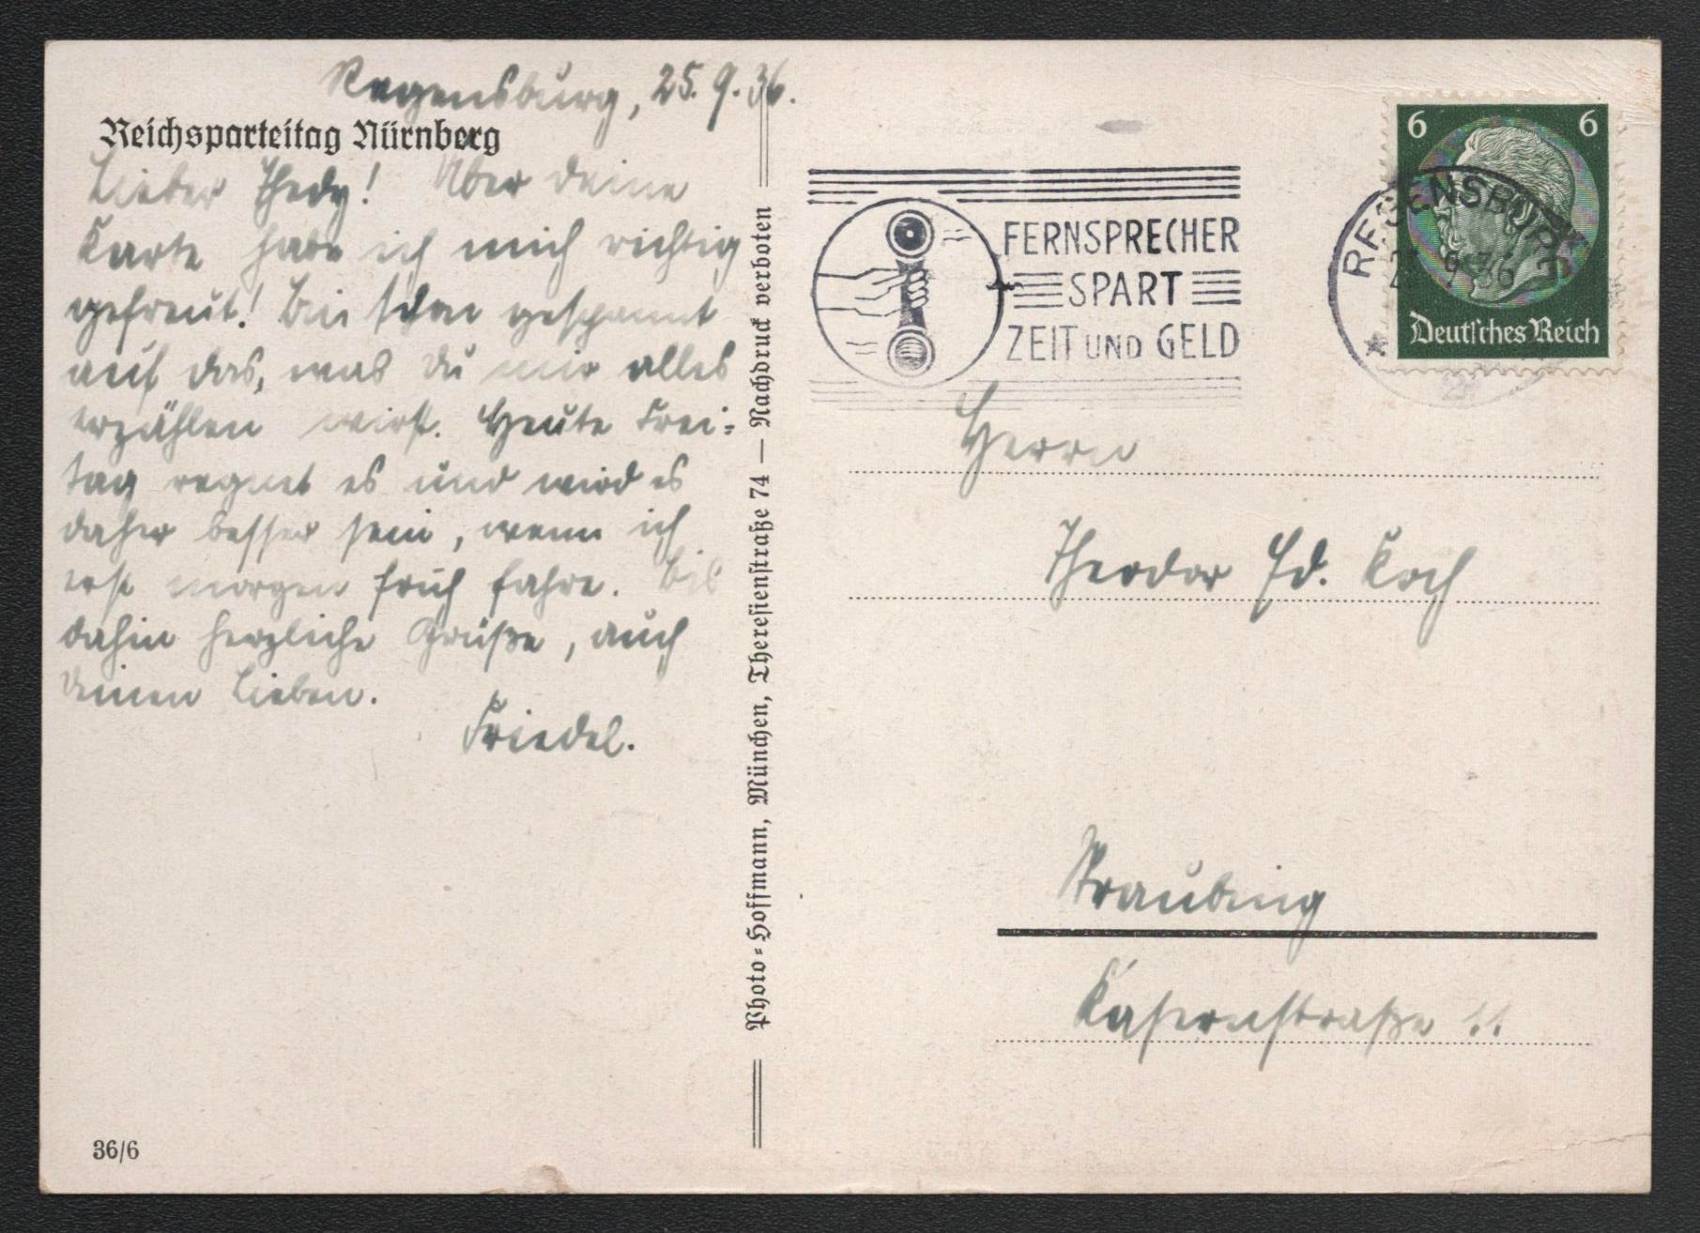 Regensburg, 25.9.36.
Reichsparteitag Nürnberg
Lieber Thedy! Über deine
Karte habe ich mich richtig
gefreut! Bin schon gespannt
auf das, was du mir alles
erzählen wirst. Heute Frei-
tag regnet es und wird es
daher besser sein, wenn ich
erst morgen früh fahre. Bis
dahin herzliche Grüße, auch
deinen Lieben.
Friedel.
36/6
Photo-Hoffmann, München, Theresienstraße 74 — Nachdruck verboten
FERNSPRECHER
SPART
ZEIT UND GELD
REGENSBURG
9 36
6 6
Deutsches Reich
Herrn
Theodor Ed. Koch
Straubing
Kasernstraße 11